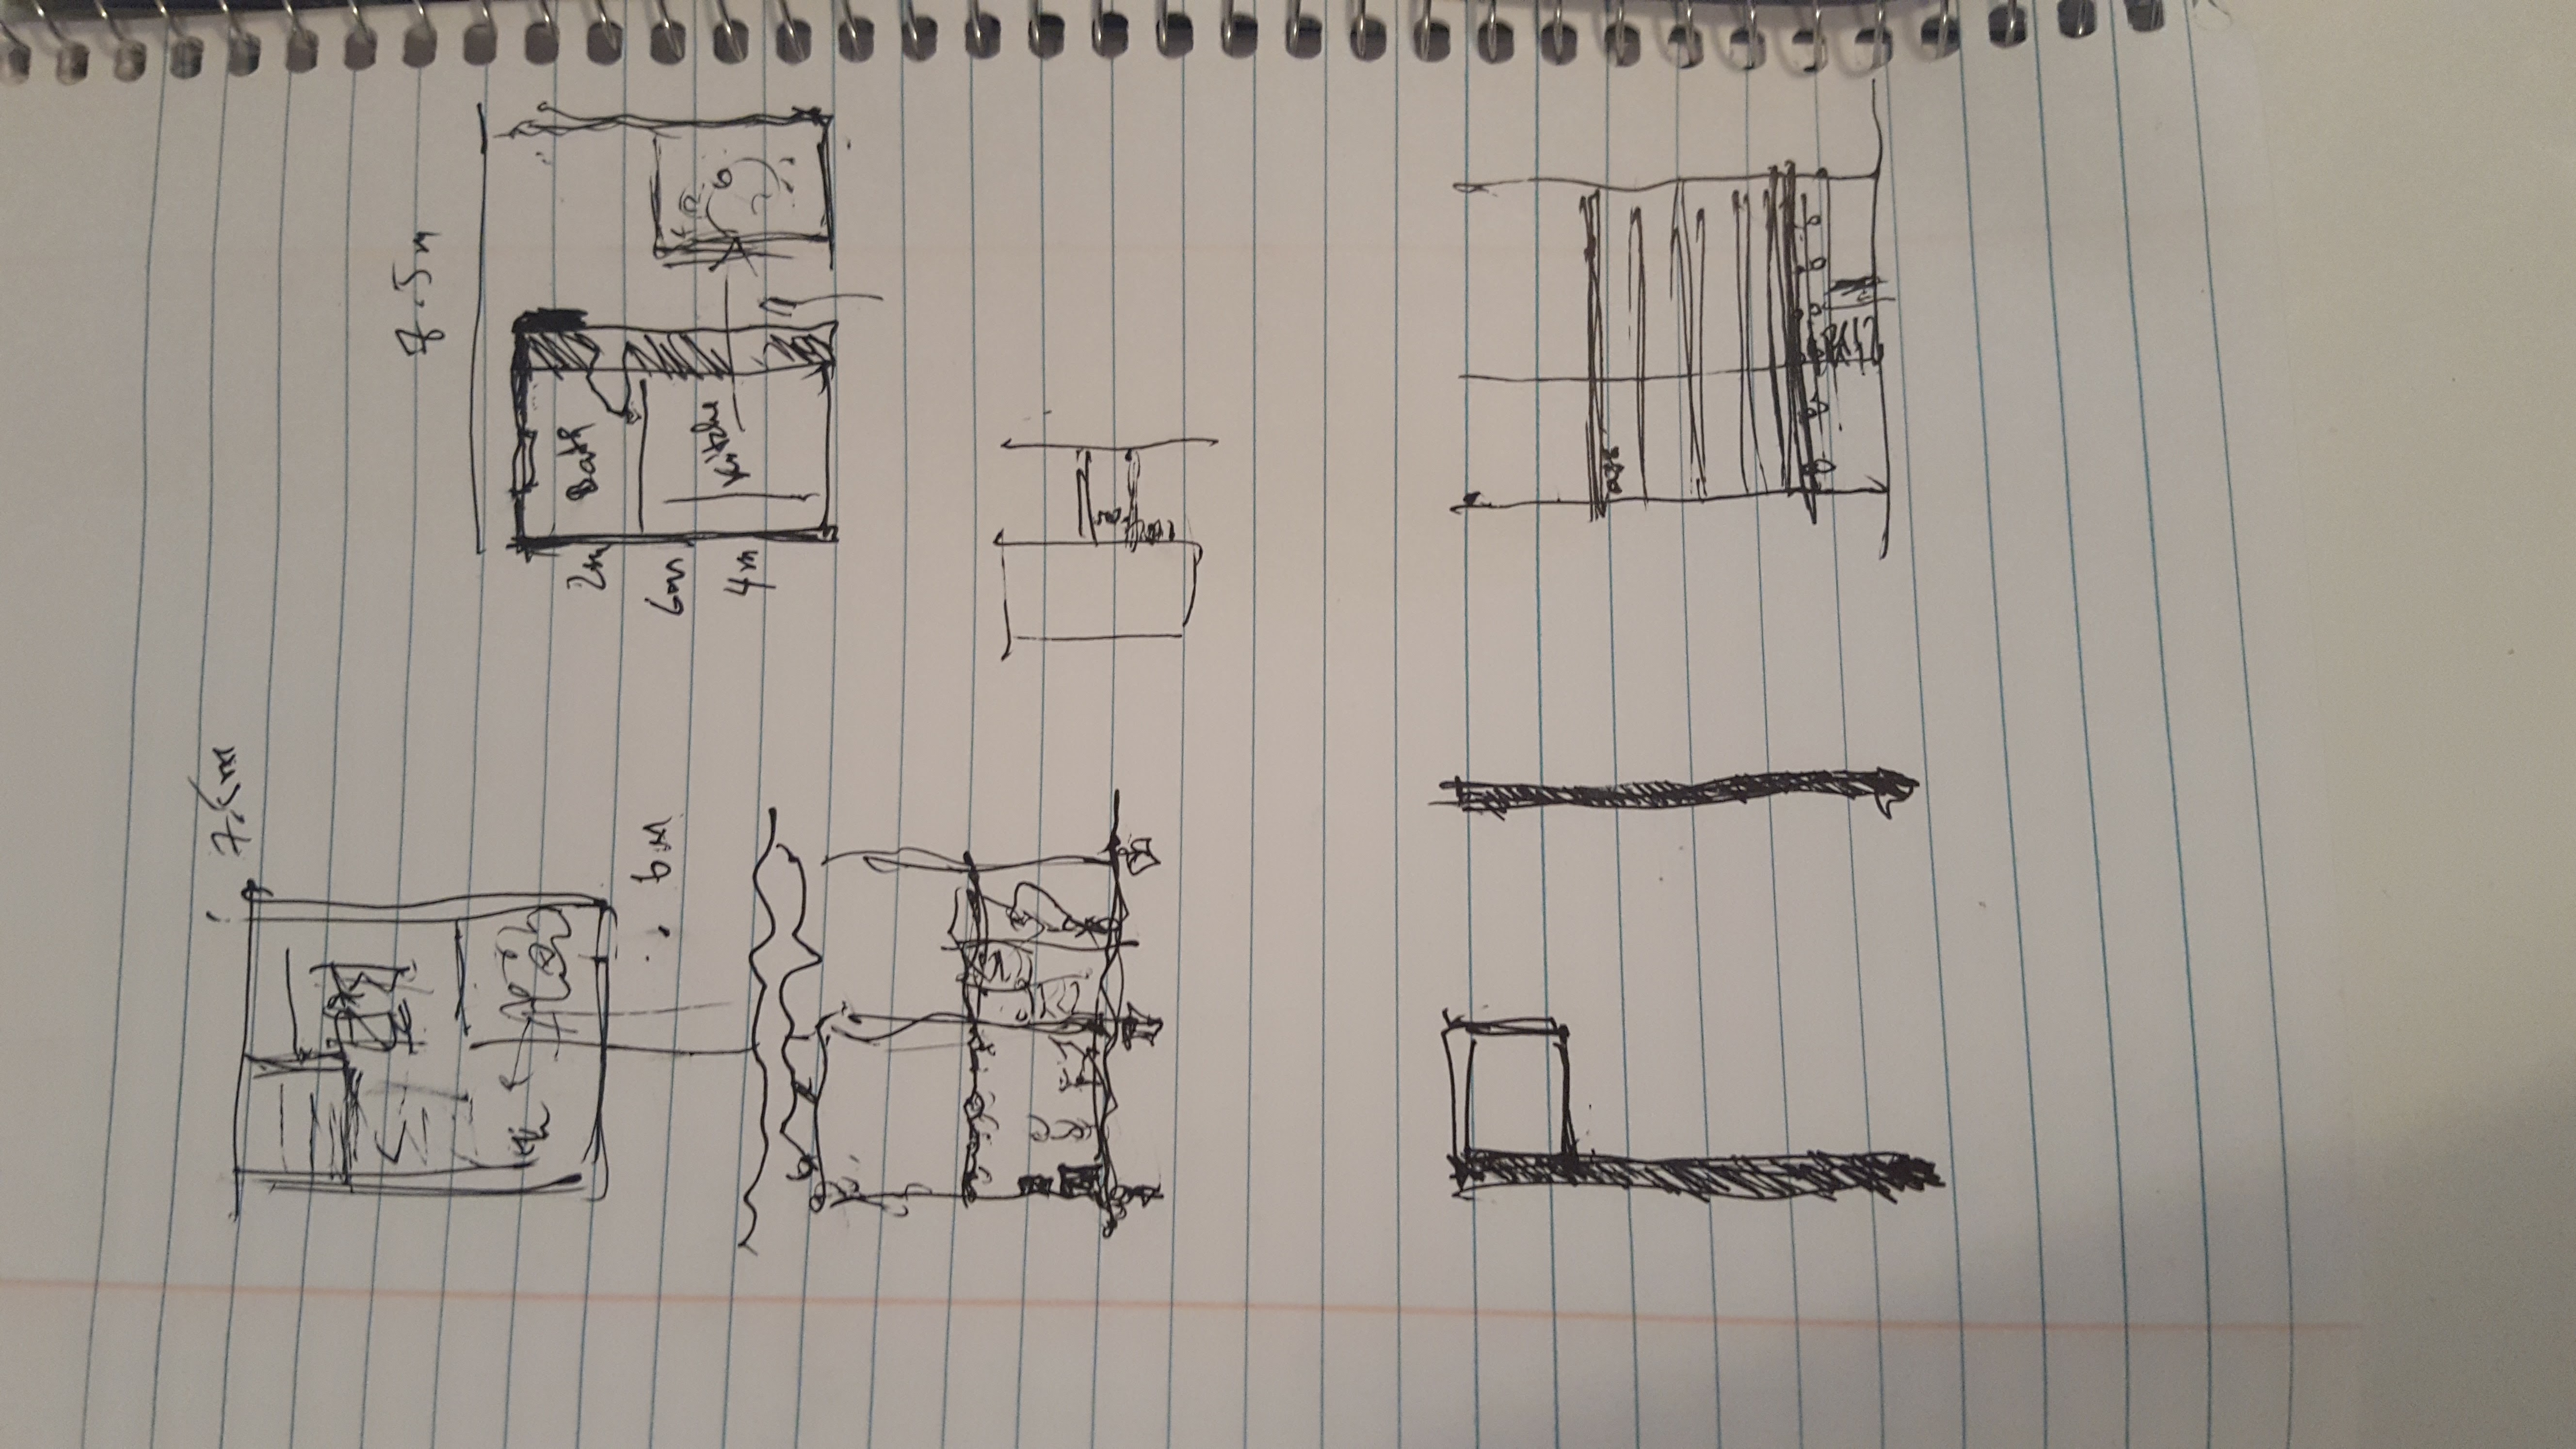 7.5m
6m
7.5m
2m
Bath
6m
4m
Kitche